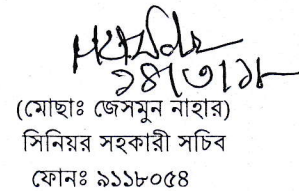 ১৪/৩/১৮
(মোছাঃ জেসমুন নাহার)
সিনিয়র সহকারী সচিব
ফোনঃ ৯১১৮০৫৪